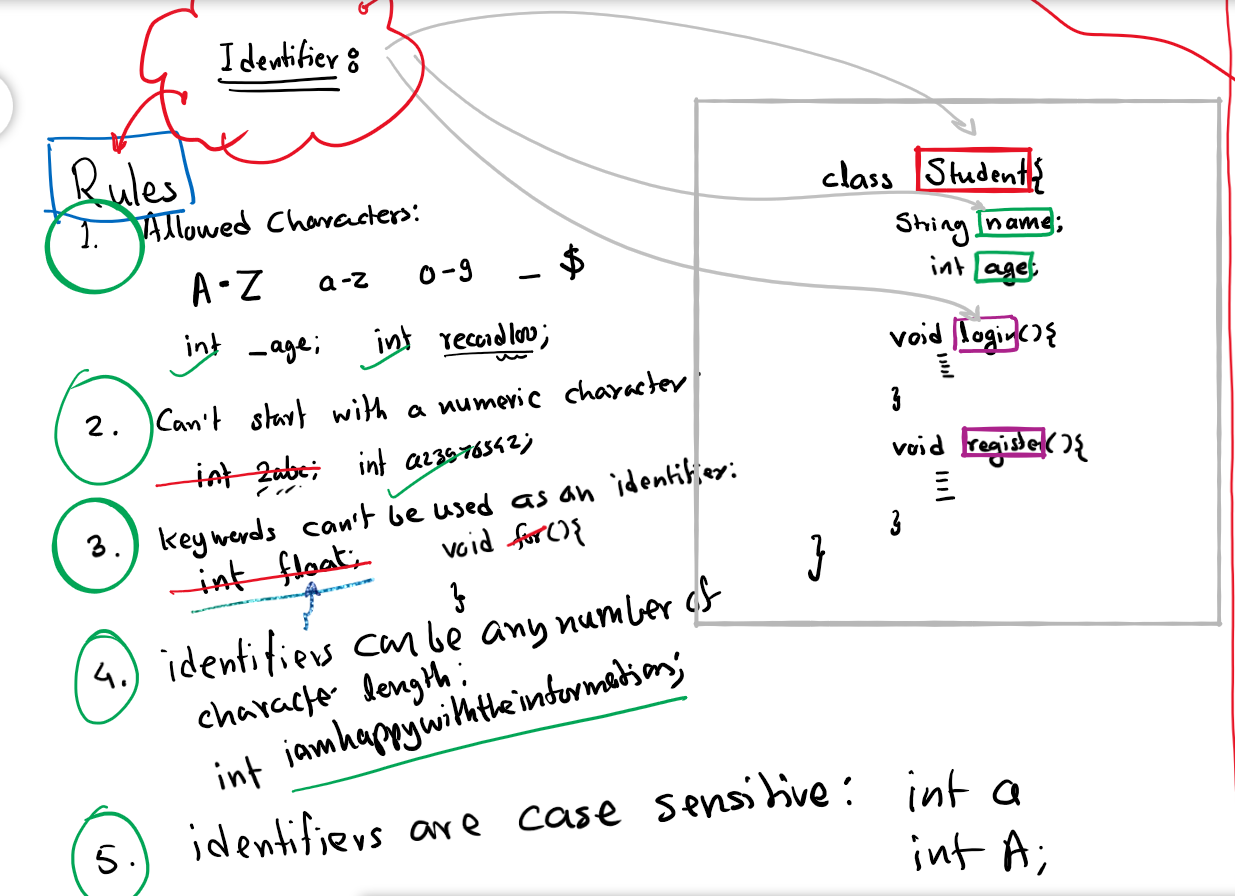 Identifier:
Rules
1. Allowed Characters:
A-Z a-z 0-9 _ $
int _age; int record100;
2. Can't start with a numeric character:
int 2abc; int
3. keywords can't be used as an identifier:
int float; void for(){
}
4. identifiers can be any number of
character length:
int iamhappywiththeinformations;
5. identifiers are case sensitive: int a
int A;
class Student{
String name;
int age;
void login(){
}
void register(){
}
}